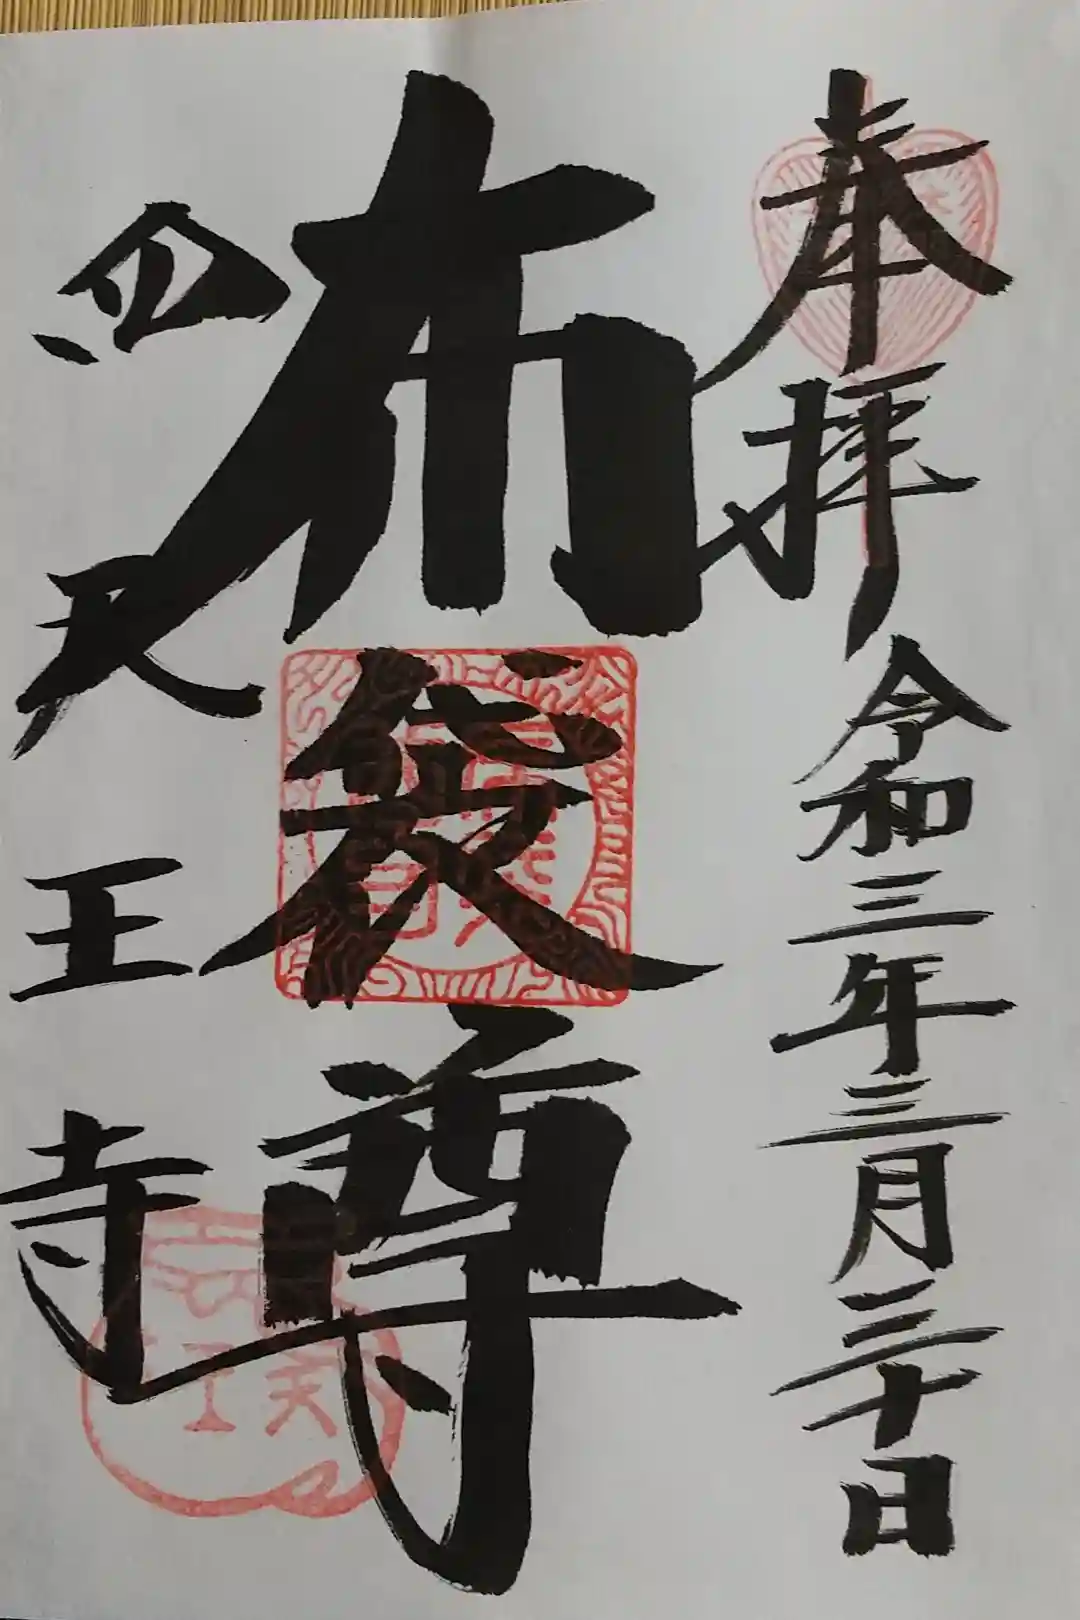 奉拝 令和三年三月三十日
布袋尊
四天王寺